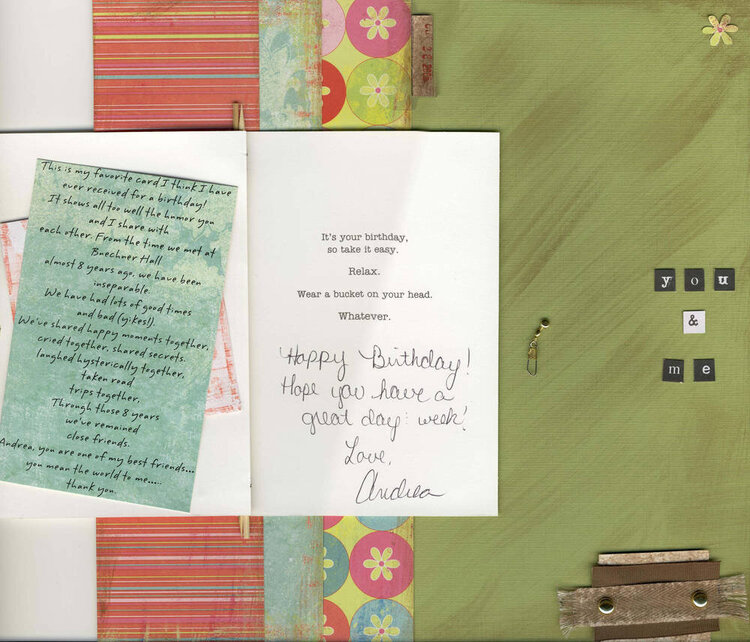 This is my favorite card I think I have
ever received for a birthday!
It shows all too well the humor you
and I share with
each other. From the time we met at
Buechner Hall
almost 8 years ago, we have been
inseparable.
We have had lots of good times
and bad (yikes!).
We've shared happy moments together,
cried together, shared secrets,
laughed hysterically together,
taken road
trips together,
Through those 8 years
we've remained
close friends.
Andrea, you are one of my best friends...
you mean the world to me.....
thank you.
It's your birthday,
so take it easy.
Relax.
Wear a bucket on your head.
Whatever.
Happy Birthday!
Hope you have a
great day: week!
Love,
Andrea
you
&
me